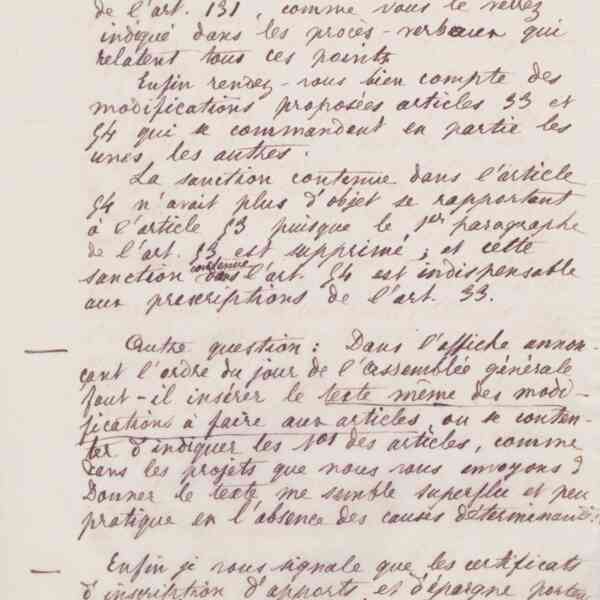 de l'art. 131, comme vous le verrez
indiqué dans les procès-verbaux qui
relatent tous ces points
Enfin rendez-vous bien compte des
modifications proposées articles 33 et
54 qui se commandent en partie les
unes les autres.
La sanction contenue dans l'article
54 n'avait plus d'objet se rapportant
à l'article 53 puisque le 1er paragraphe
de l'art. 53 est supprimé ; et cette
sanction contenue dans l'art. 54 est indispensable
aux prescriptions de l'art. 33.
Autre question : Dans l'affiche annon-
çant l'ordre du jour de l'Assemblée générale
faut-il insérer le texte même des modi-
fications à faire aux articles, ou se conten-
ter d'indiquer les Nos des articles, comme
dans les projets que nous vous envoyons ?
Donner le texte me semble superflu et peu
pratique en l'absence des causes déterminantes.
Enfin je vous signale que les certificats
d'inscription d'apports et d'épargne portent